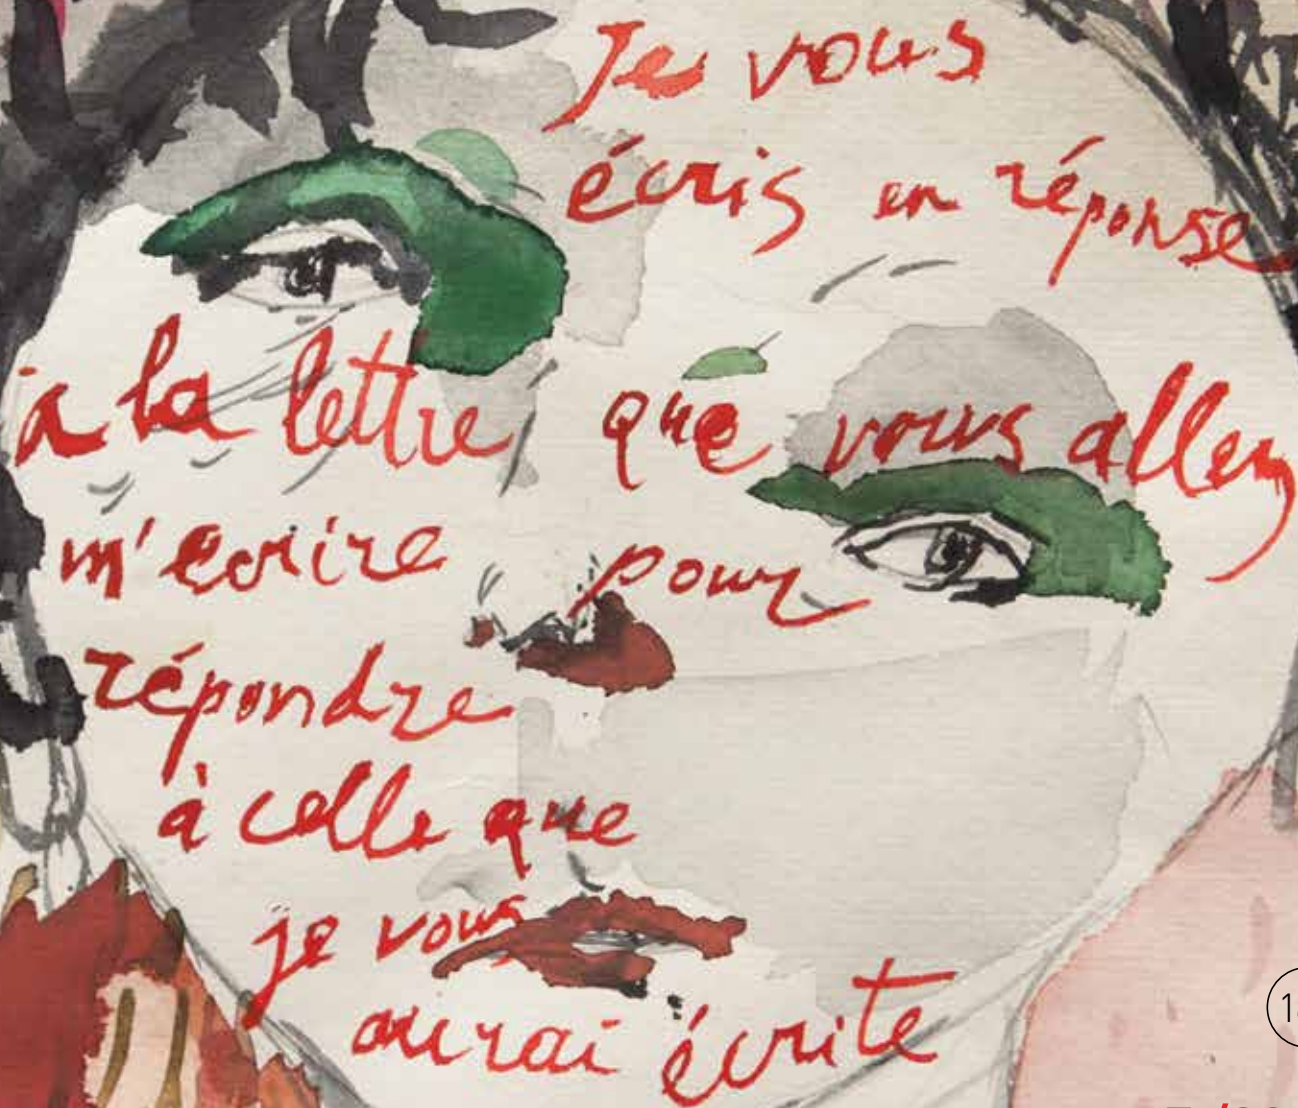 Je vous
écris en réponse
à la lettre que vous allez
m'écrire pour
répondre
à celle que
je vous
aurai écrite